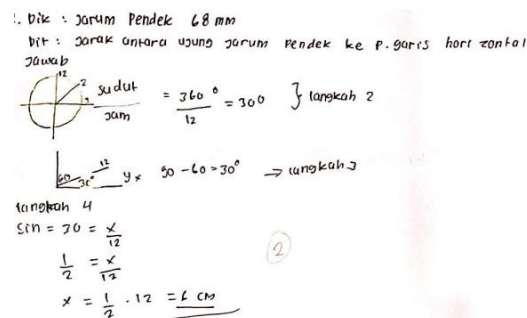 : Dik : Jarum Pendek 68 mm
Dit : Jarak antara ujung jarum Pendek ke P. garis horizontal
Jawab
12
2
3
sudut
Jam
= 360°
12
= 30°
} langkah 2
60
30°
12
yx
90 - 60 = 30°
→ langkah 3
langkah 4
Sin = 30 = x
12
1
2
= x
12
x = 1
2
. 12 = 6 cm
2